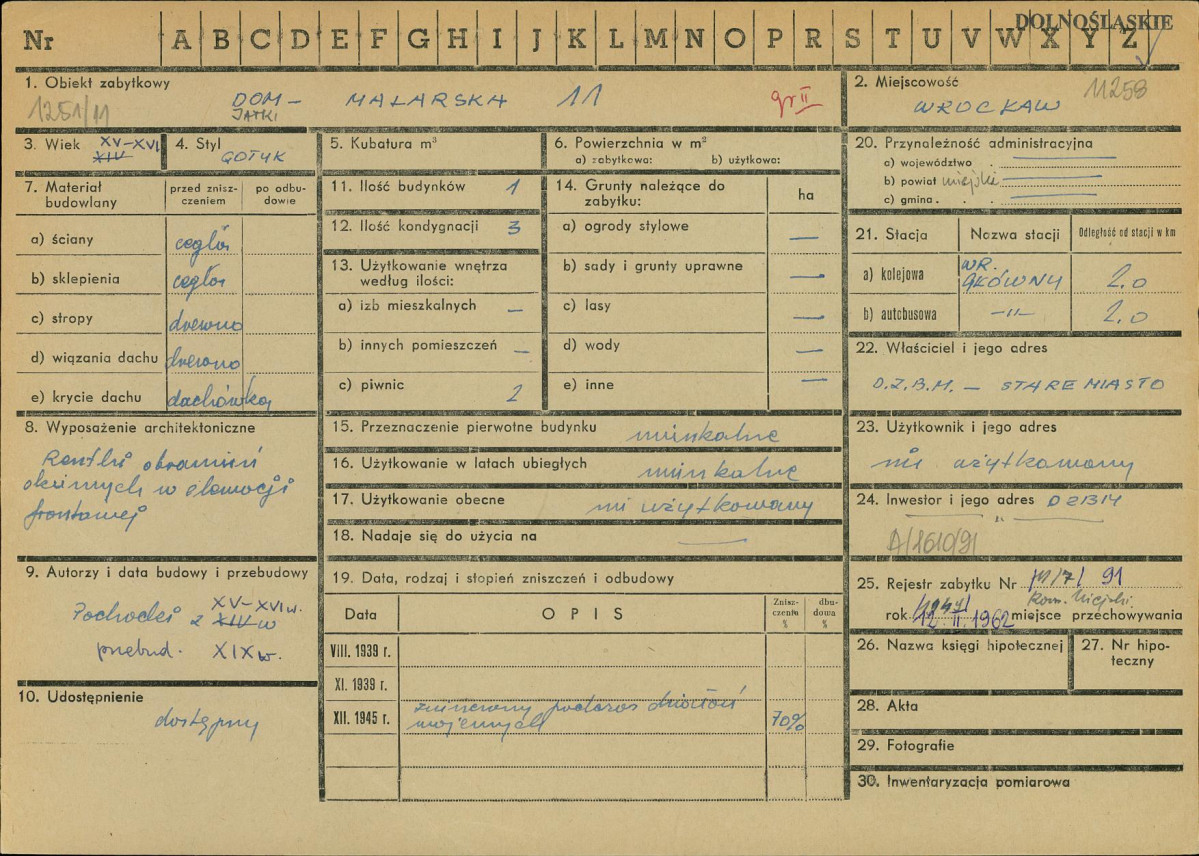 DOLNOŚLĄSKIE
Nr A B C D E F G H I J K L M N O P R S T U V W X Y Z
1. Obiekt zabytkowy
1251/11
DOM - MALARSKA 11
JATKI
gr II
2. Miejscowość
11258
WROCŁAW
3. Wiek XV-XVI
XIV
4. Styl
GOTYK
5. Kubatura m³
6. Powierzchnia w m²
a) zabytkowa: b) użytkowa:
7. Materiał budowlany
przed zniszczeniem
po odbudowie
a) ściany cegła
b) sklepienia cegła
c) stropy drewno
d) wiązania dachu drewno
e) krycie dachu dachówka
8. Wyposażenie architektoniczne
Resztki obramień
okiennych w elewacji
frontowej
9. Autorzy i data budowy i przebudowy
XV-XVI w.
Pochodzi z XIV w
przebud. XIX w.
10. Udostępnienie
dostępny
11. Ilość budynków 1
12. Ilość kondygnacji 3
13. Użytkowanie wnętrza
według ilości:
a) izb mieszkalnych –
b) innych pomieszczeń –
c) piwnic 2
14. Grunty należące do
zabytku:
ha
a) ogrody stylowe —
b) sady i grunty uprawne —
c) lasy —
d) wody —
e) inne —
15. Przeznaczenie pierwotne budynku mieszkalne
16. Użytkowanie w latach ubiegłych mieszkalne
17. Użytkowanie obecne nie użytkowany
18. Nadaje się do użycia na —
19. Data, rodzaj i stopień zniszczeń i odbudowy
Data
OPIS
Zniszczenia %
dbudowa %
VIII. 1939 r.
XI. 1939 r.
XII. 1945 r.
zniszczony podczas działań
wojennych
70%
20. Przynależność administracyjna
a) województwo
b) powiat miejski
c) gmina
21. Stacja
Nazwa stacji
Odległość od stacji w km
a) kolejowa WR. GŁÓWNY 2.0
b) autobusowa —"— 2.0
22. Właściciel i jego adres
D.Z.B.M. – STARE MIASTO
23. Użytkownik i jego adres
nie użytkowany
24. Inwestor i jego adres DZBM
— " —
A/1610/91
25. Rejestr zabytku Nr
91
rok 12.II.1962 miejsce przechowywania
26. Nazwa księgi hipotecznej
27. Nr hipoteczny
28. Akta
29. Fotografie
30. Inwentaryzacja pomiarowa